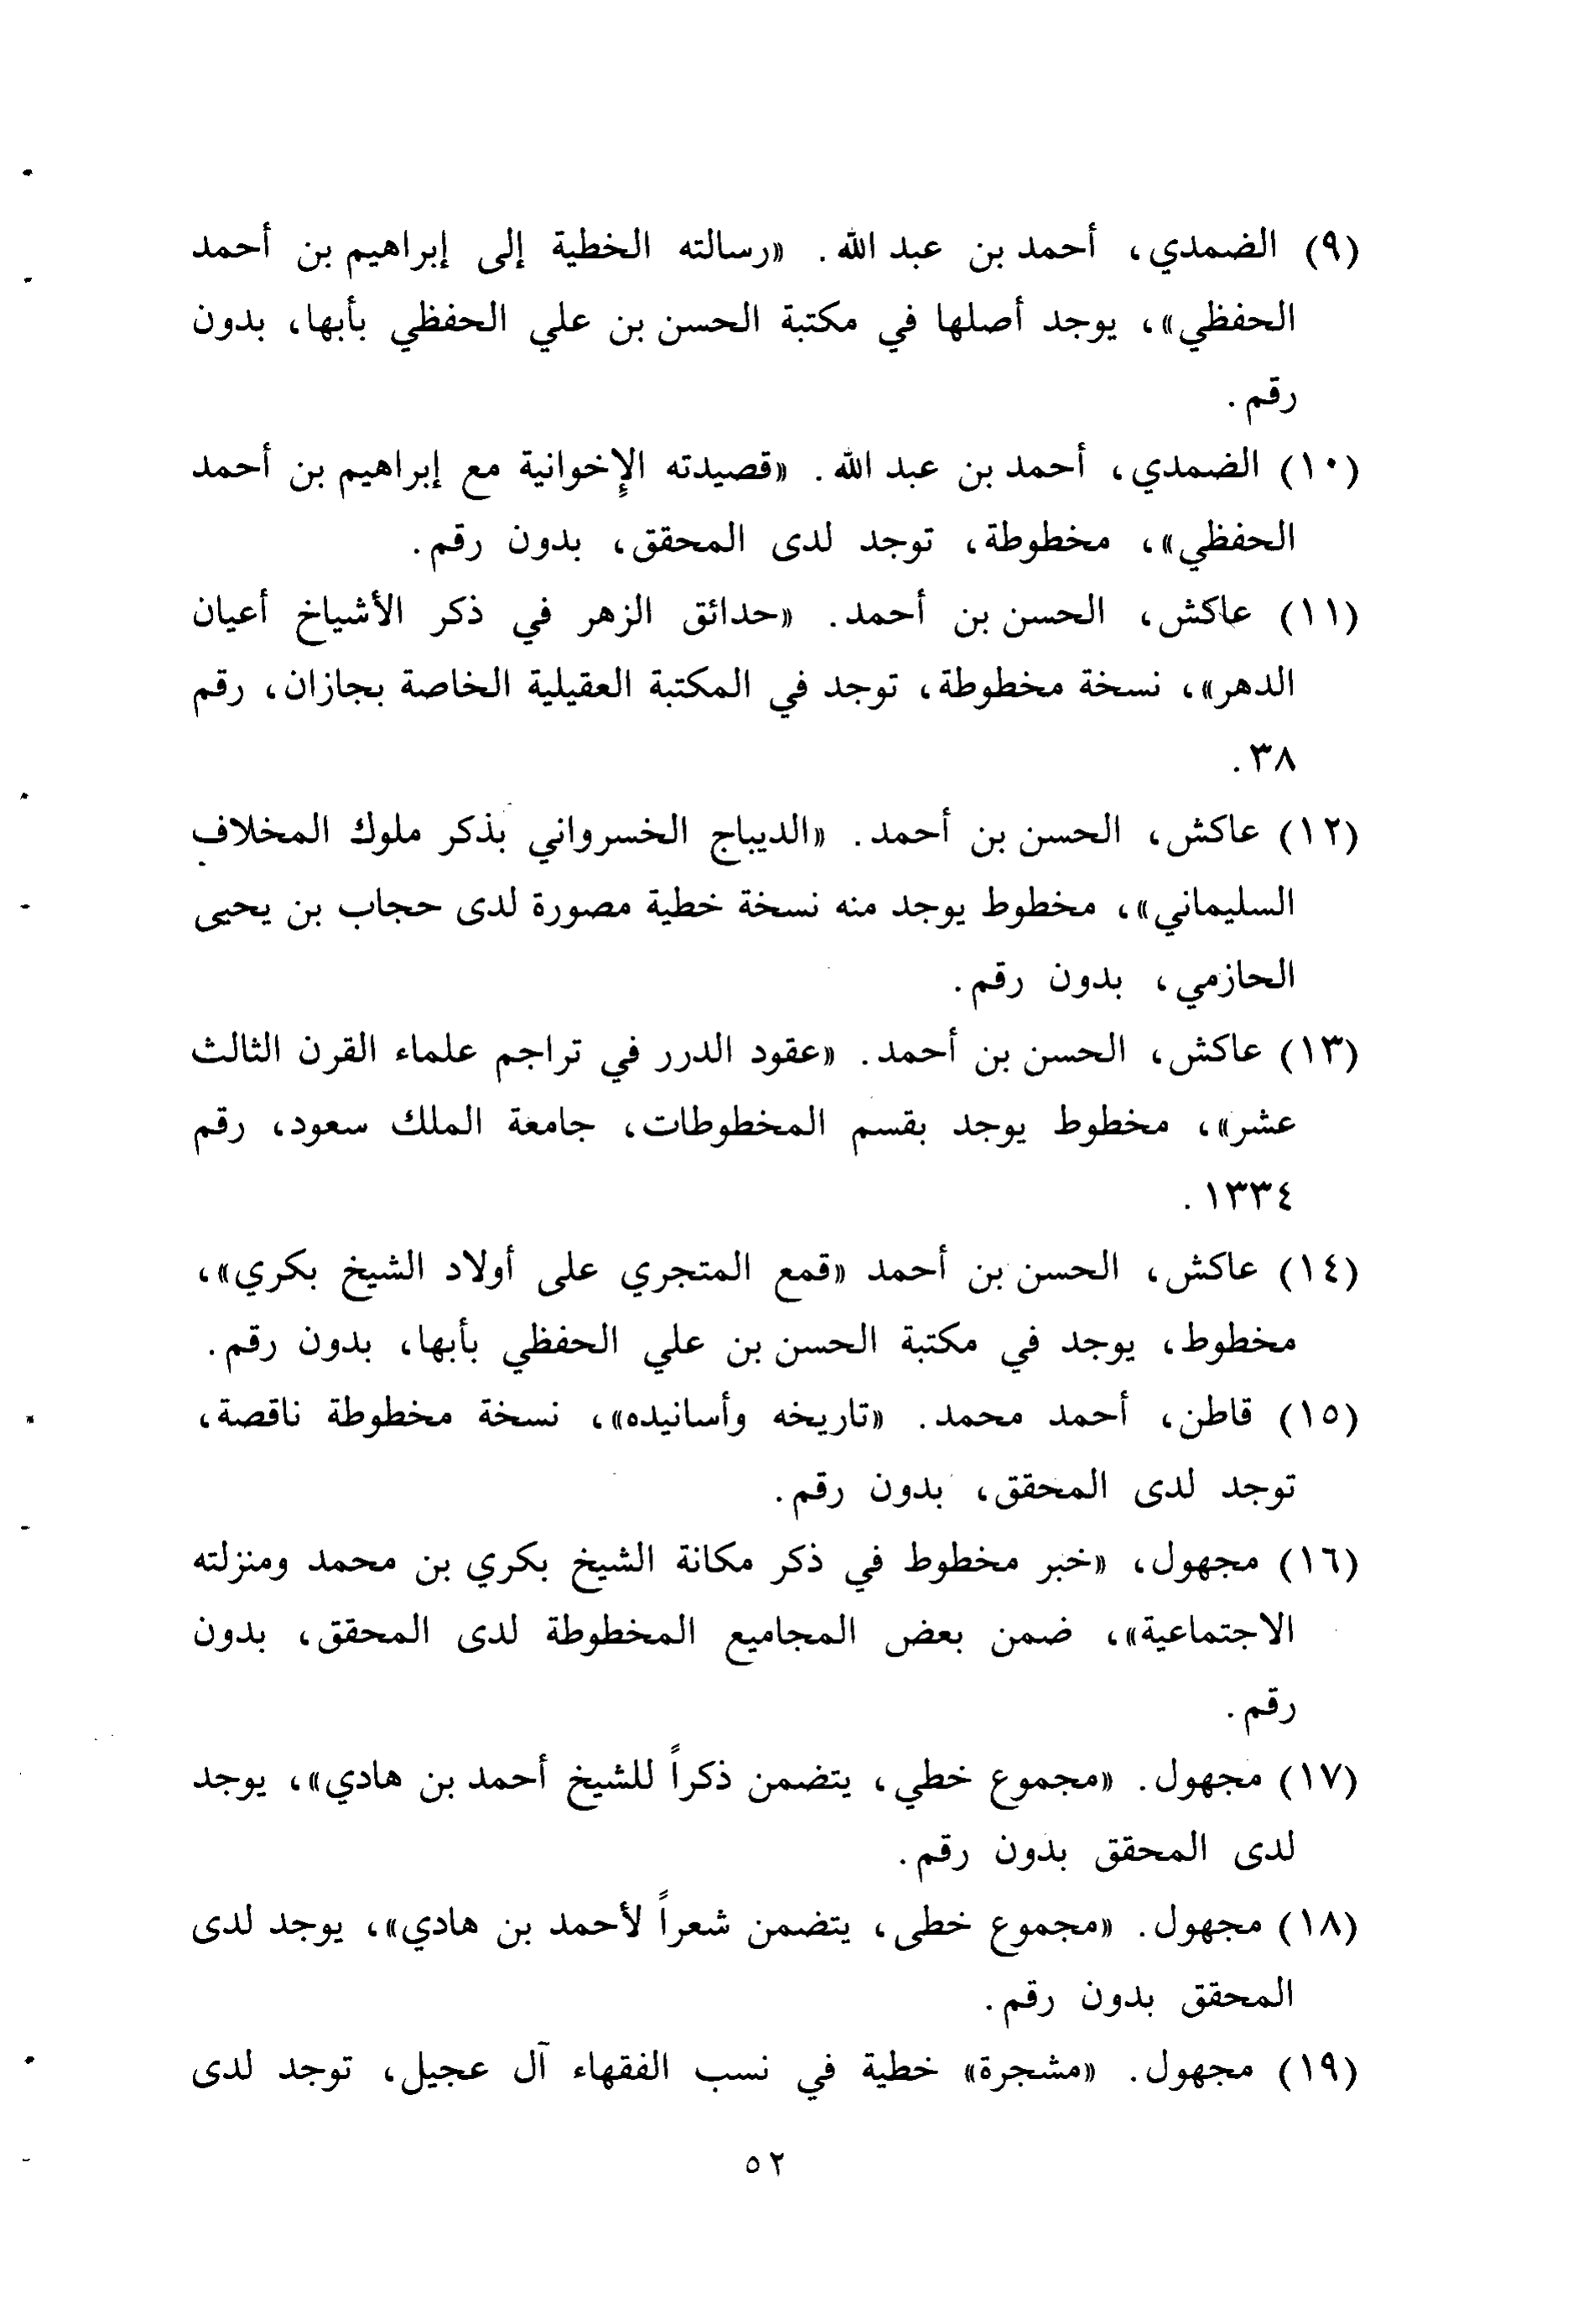 (٩) الضمدي، أحمد بن عبد الله. «رسالته الخطية إلى إبراهيم بن أحمد
الحفظي»، يوجد أصلها في مكتبة الحسن بن علي الحفظي بأبها، بدون
رقم.
(١٠) الضمدي، أحمد بن عبد الله. «قصيدته الإخوانية مع إبراهيم بن أحمد
الحفظي»، مخطوطة، توجد لدى المحقق، بدون رقم.
(١١) عاكش، الحسن بن أحمد. «حدائق الزهر في ذكر الأشياخ أعيان
الدهر»، نسخة مخطوطة، توجد في المكتبة العقيلية الخاصة بجازان، رقم
٣٨.
(١٢) عاكش، الحسن بن أحمد. «الديباج الخسرواني بذكر ملوك المخلاف
السليماني»، مخطوط يوجد منه نسخة خطية مصورة لدى حجاب بن يحيى
الحازمي، بدون رقم.
(١٣) عاكش، الحسن بن أحمد. «عقود الدرر في تراجم علماء القرن الثالث
عشر»، مخطوط يوجد بقسم المخطوطات، جامعة الملك سعود، رقم
١٣٣٤.
(١٤) عاكش، الحسن بن أحمد «قمع المتجري على أولاد الشيخ بكري»،
مخطوط، يوجد في مكتبة الحسن بن علي الحفظي بأبها، بدون رقم.
(١٥) قاطن، أحمد محمد. «تاريخه وأسانيده»، نسخة مخطوطة ناقصة،
توجد لدى المحقق، بدون رقم.
(١٦) مجهول، «خبر مخطوط في ذكر مكانة الشيخ بكري بن محمد ومنزلته
الاجتماعية»، ضمن بعض المجاميع المخطوطة لدى المحقق، بدون
رقم.
(١٧) مجهول. «مجموع خطي، يتضمن ذكراً للشيخ أحمد بن هادي»، يوجد
لدى المحقق بدون رقم.
(١٨) مجهول. «مجموع خطى، يتضمن شعراً لأحمد بن هادي»، يوجد لدى
المحقق بدون رقم.
(١٩) مجهول. «مشجرة» خطية في نسب الفقهاء آل عجيل، توجد لدى
٥٢